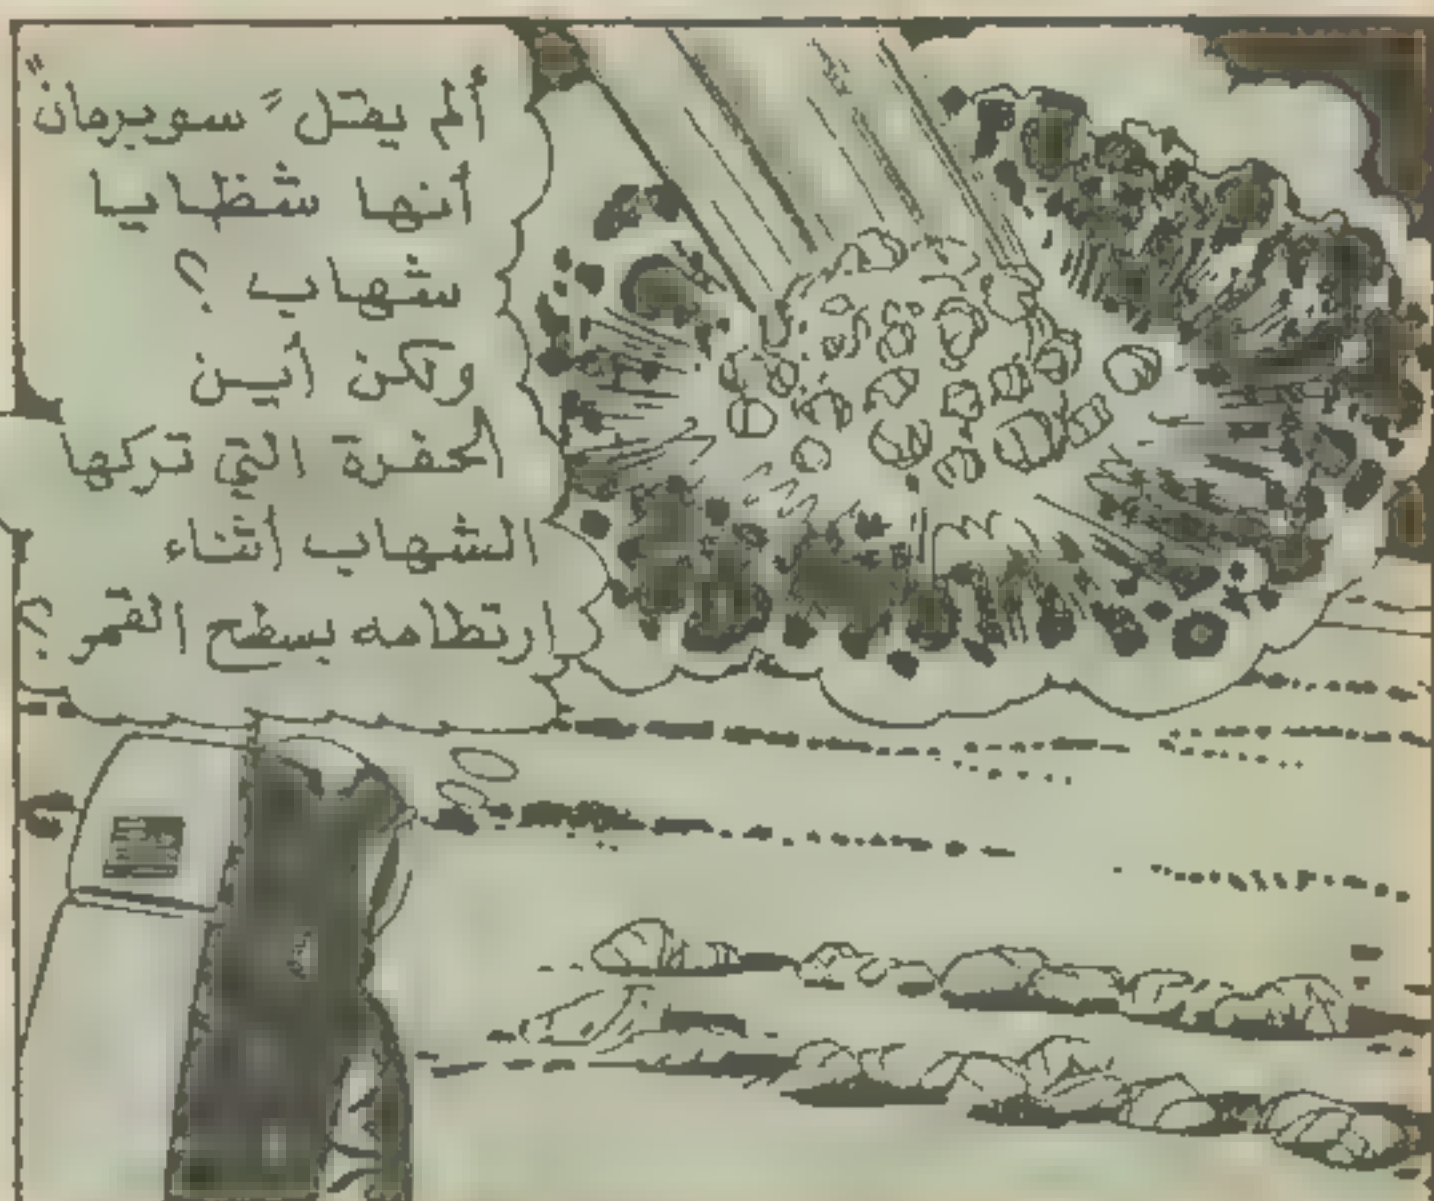 ألم يقتل "سوبرمان"
أنها شظايا
شهاب ؟
ولكن أين
الحفرة التي تركها
الشهاب أثناء
ارتطامه بسطح القمر ؟